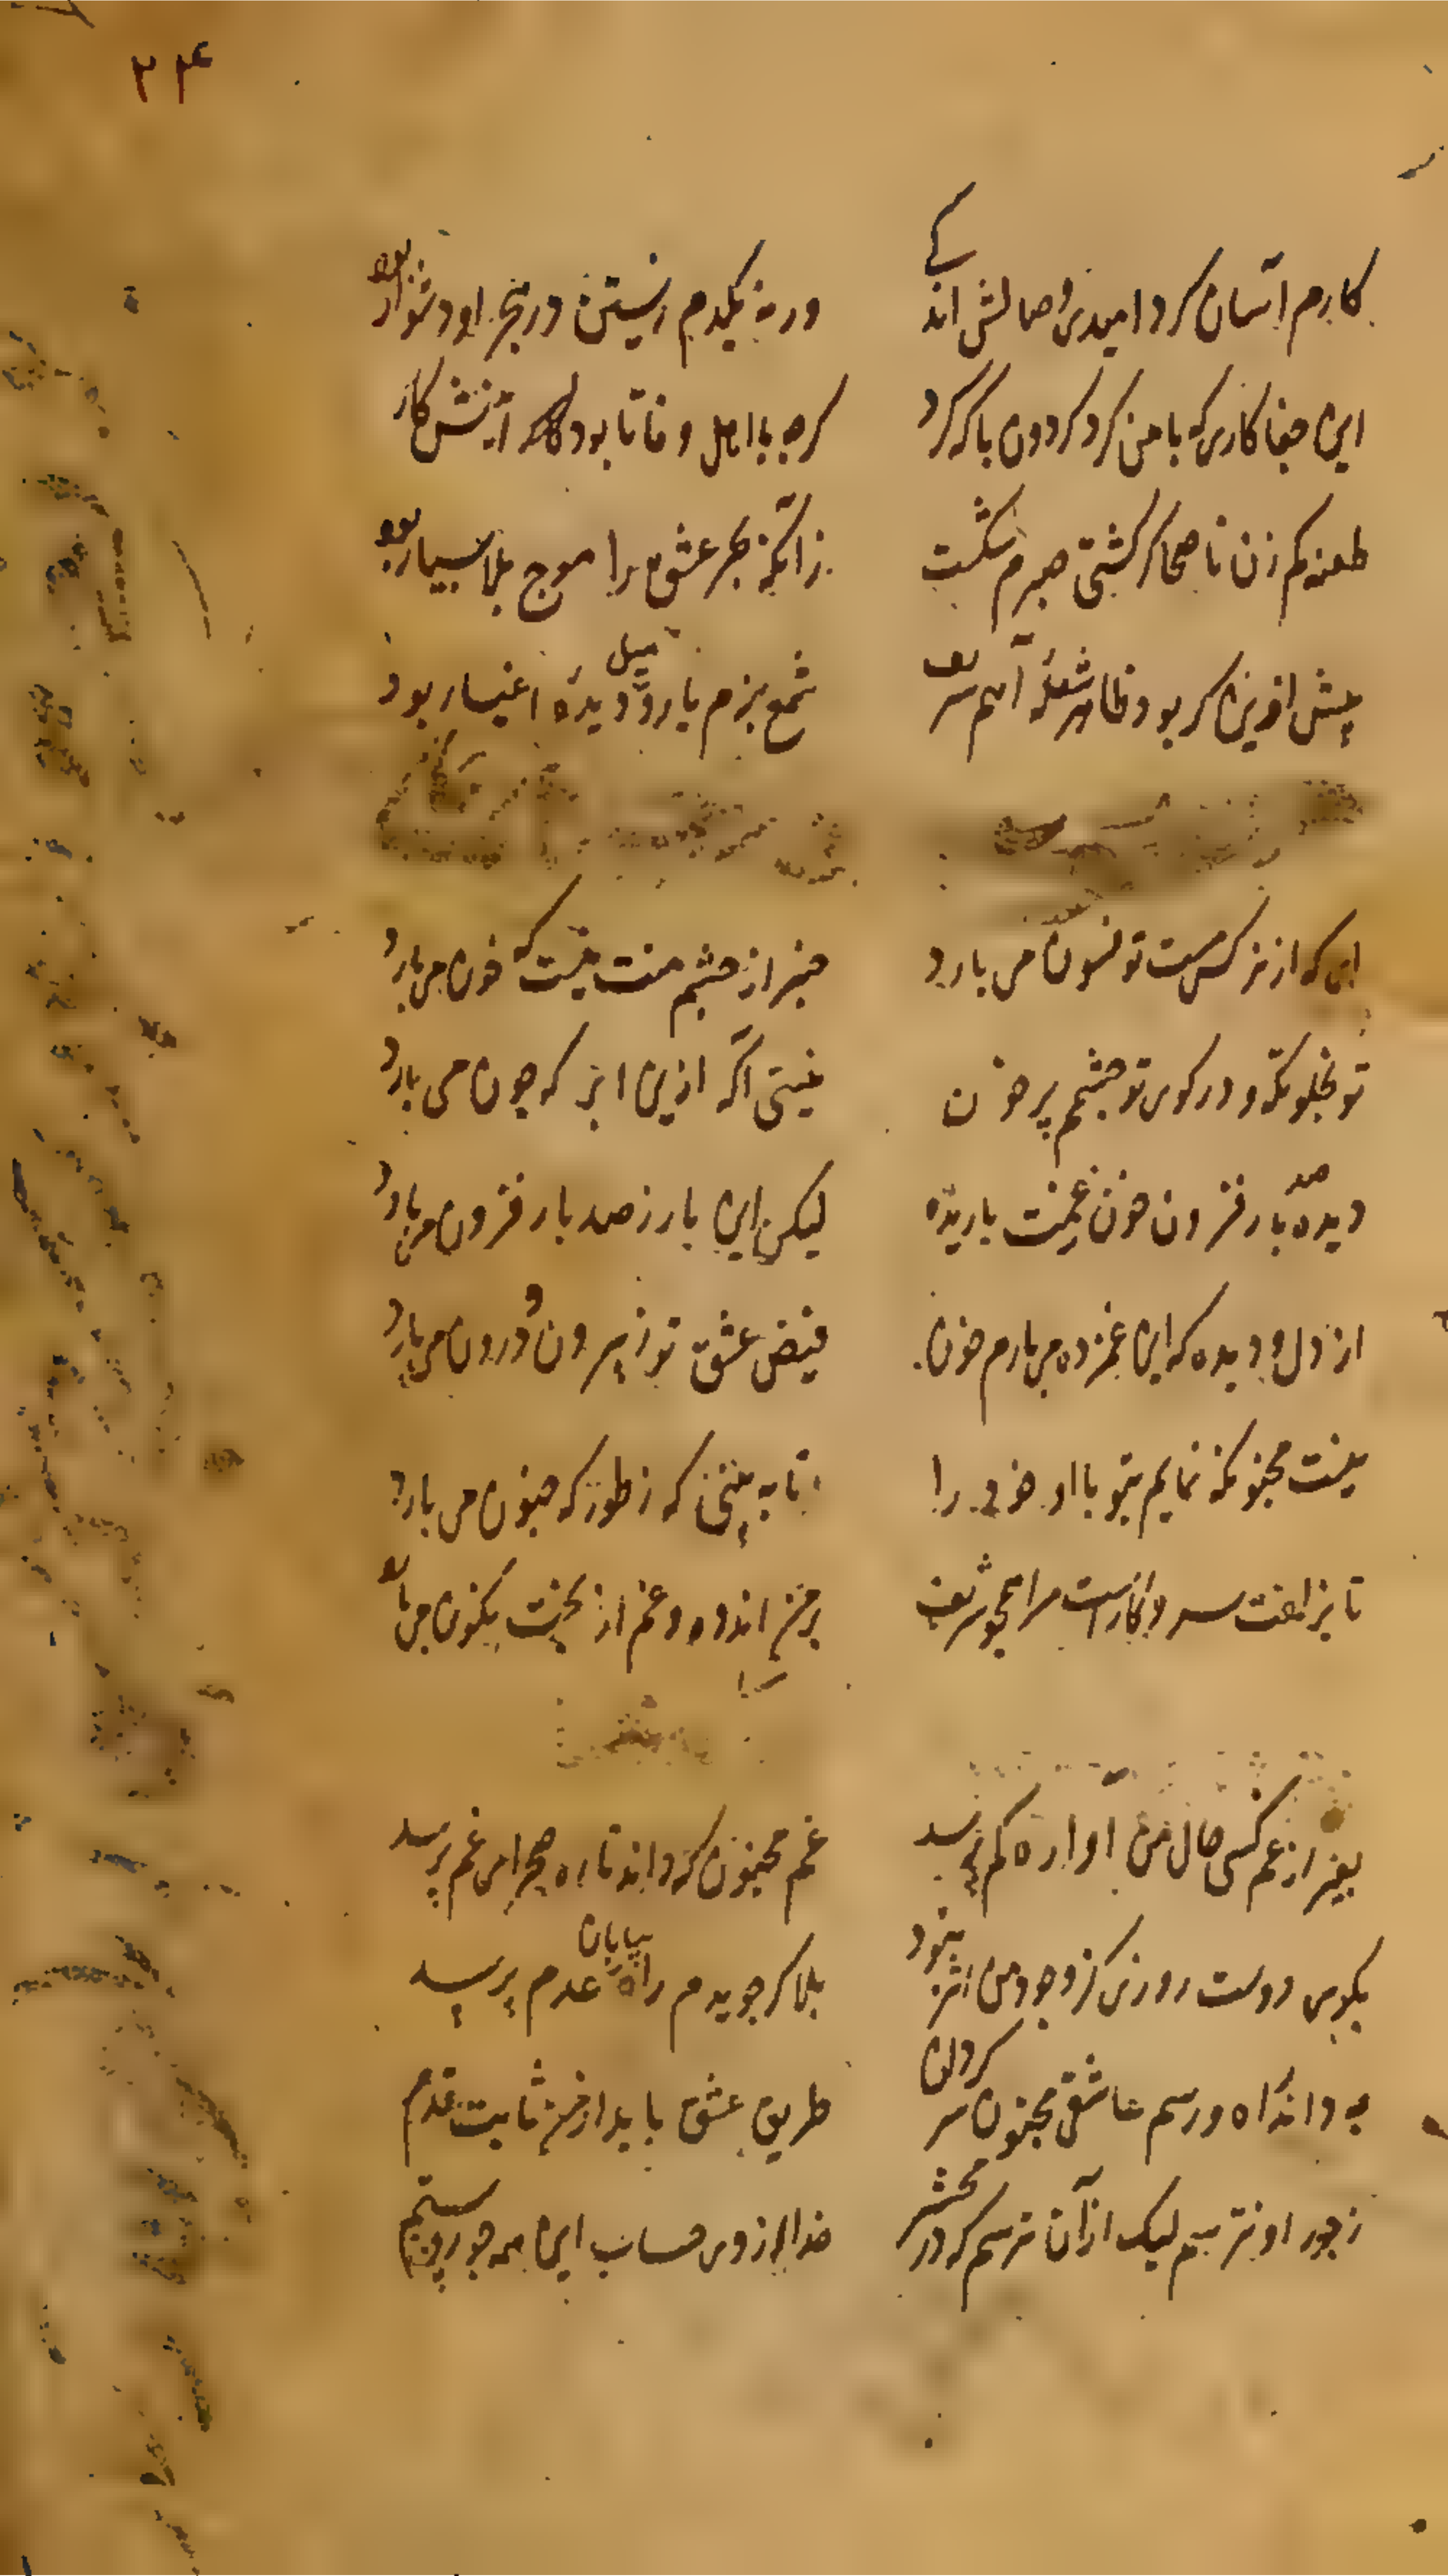 ۲۴
کارم آسان کرد امید وصالش اندکی
ورنه یکدم زیستن در هجر او دشوار بود
این جفا کاری که با من کرد گردون با که کرد
گرچه با اهل وفا تا بود اینش کار
طعنه کم زن ناصحا گر کشتی صبرم شکست
زآنکه بحر عشق را موج بلا بسیار بود
پیش ازین گر بود ظاهر شعلهٔ آهم شریف
شمع بزم یار و میل دیدهٔ اغیار بود
ای که از نرگس مست تو فسون می بارد
خبر از چشم منت نیست که خون می بارد
تو بخلوتگه و در کوی تو چشم پر خون
نیستی آگه ازین ابر که چون می بارد
دیده صد بار فزون خون غمت باریده
لیکن این بار ز صد بار فزون می بارد
از دل و دیده که این غمزده می بارم خون
فیض عشق تو ز بیرون و درون می بارد
نیست مجنون که نمایم بتو با او خود را
تا به بینی که ز طور که جنون می بارد
تا بزلفت سر و کارست مرا همچو شریف
بر من اندوه و غم از بخت نگون می بارد
بغیر از غم کسی حال من آواره کم پرسد
غم مجنون کرد اند تا راه صحرای غم پرسد
بکوی دوست روزی کز وجود من اثر نبود
بلا گر جویدم راه بیابان عدم پرسد
چه داند راه و رسم عاشقی مجنون سر گردان
طریق عشق باید از من ثابت قدم
ز جور او نترسم لیک از آن ترسم که در محشر
خدا از وی حساب این همه جور و ستم پرسد